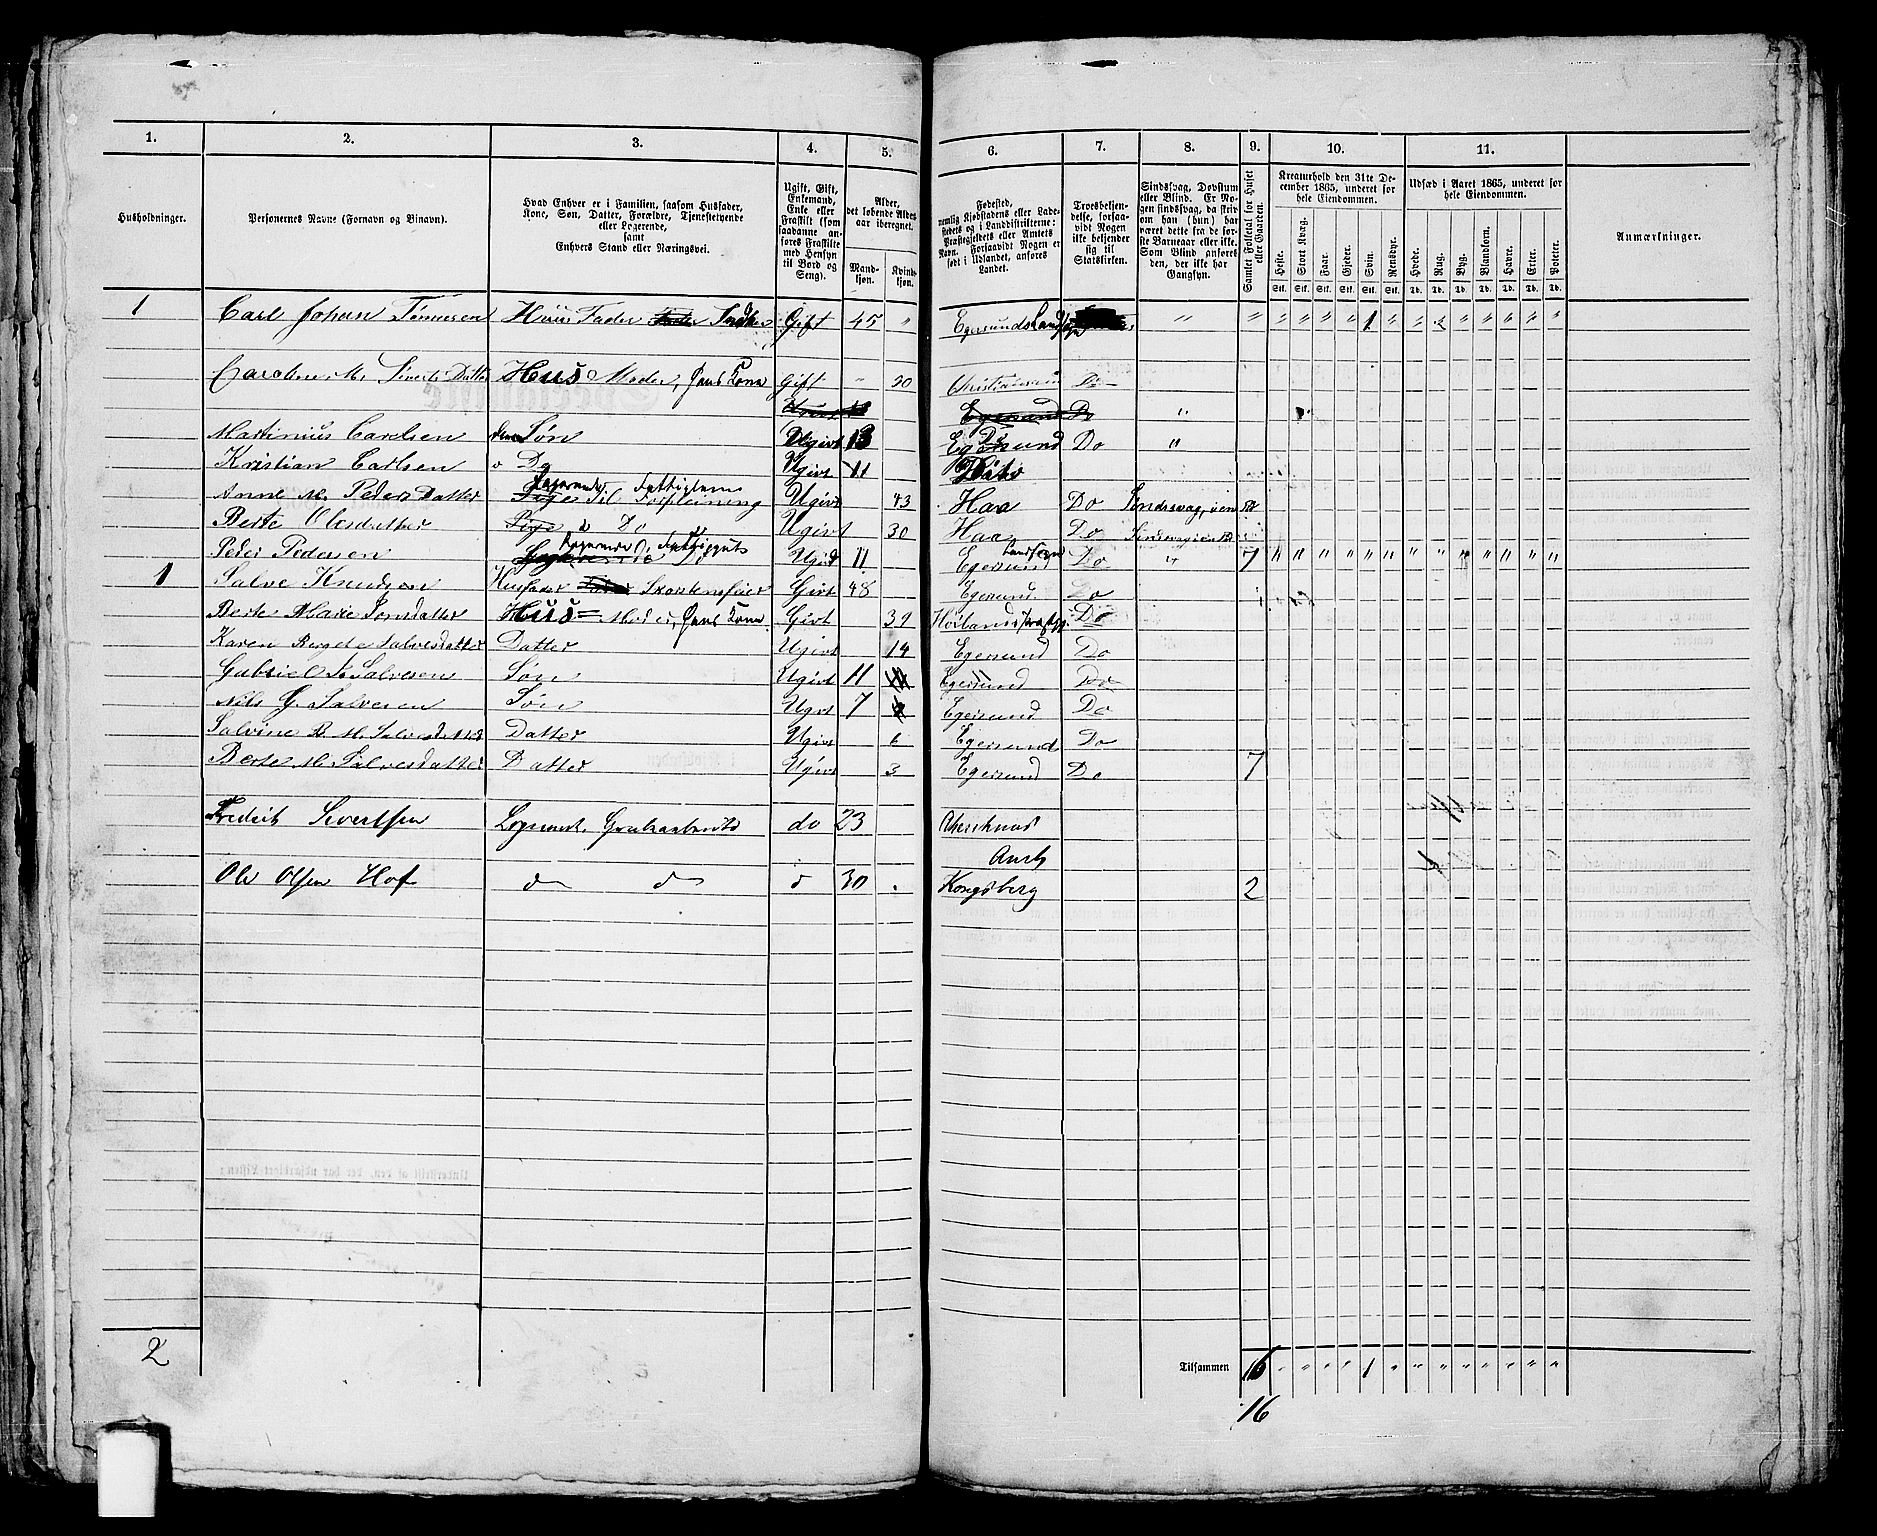 1. 2. 3. 4. 5. 6. 7. 8. 9. 10. 11.
Husholdninger.
Personernes Navne (Fornavn og Binavn).
Hvad Enhver er i Familien, saasom Husfader,
Kone, Søn, Datter, Forældre, Tjenestetyende
eller Logerende,
samt
Enhvers Stand eller Næringsvei.
Ugift, Gift,
Enkemand,
Enke eller
Fraskilt (som
saadanne an-
føres Fraskilte
med Hensyn
til Bord og
Seng).
Alder,
det løbende Alders-
aar iberegnet.
Mand-
kjøn.
Kvind-
kjøn.
Fødested,
nemlig Kjøbstadens eller Lade-
stedets og i Landdistrikterne:
Præstegjeldets eller Amtets
Navn. Forsaavidt Nogen er
født i Udlandet, anføres
Landet.
Troesbekjen-
delse, forsaa-
vidt Nogen
ikke bekjender
sig til
Statskirken.
Sindssvag, Døvstum
eller Blind. Er No-
gen sindssvag, da skriv
om han (hun) har
været dette fra de før-
ste Barneaar eller ikke.
Som Blind anføres
den, der ikke har
Gangsyn.
Samlet Folketal for Huset
eller Gaarden.
Kreaturhold den 31te De-
cember 1865, underet for
hele Eiendommen.
Heste. Stort Kvæg. Faar. Gjeder. Svin. Rensdyr.
Stk. Stk. Stk. Stk. Stk. Stk.
Udsæd i Aaret 1865, underet for
hele Eiendommen.
Hvede. Rug. Byg. Blandkorn. Havre. Erter. Poteter.
Td. Td. Td. Td. Td. Td. Td.
Anmærkninger.
1 Carl Johan Tønnesen Huus Fader Gift 45 " Egersunds " " " " " " 1 " " " " " " " "
Caroline M. Siverts Datter Hus Moder, Hans Kone Gift " 50 Do
Egersund Do "
Martinius Carlsen Søn Ugivt 13 Egersund Do "
Kristian Carlsen Do Ugivt 11
Anne M. Peders Datter Logerende Til Forpleining Ugivt 43 Haa Do
Berte Olesdatter Do Ugivt 30 Haa Do
Peder Pedersen Logerende Ugivt 11 Egersund Do " 7 " " " " " " " " " " " " "
1 Salve Knudsen Husfader Skorstensfeier Givt 48 Egersund Do
Berte Marie Jonsdatter Hus= Moder, Hans Kone. Givt 39 Do
Karen Bergete Salvesdatter Datter Ugivt 14 Egersund Do
Gabriel Salvesen Søn Ugivt 11 Egersund Do
Nils G. Salvesen Søn Ugivt 7 Egersund Do
Salvine B. M. Salvesdatter Datter Ugivt 6 Egersund Do
Berte M. Salvesdatter Datter Ugivt 3 Egersund Do 7
Fredrik Sivertsen do 23
Ole Olsen Hof d d d 30 . Kongsberg 2
2 Tilsammen 16 " " " " 1 " " " " " " " "
16